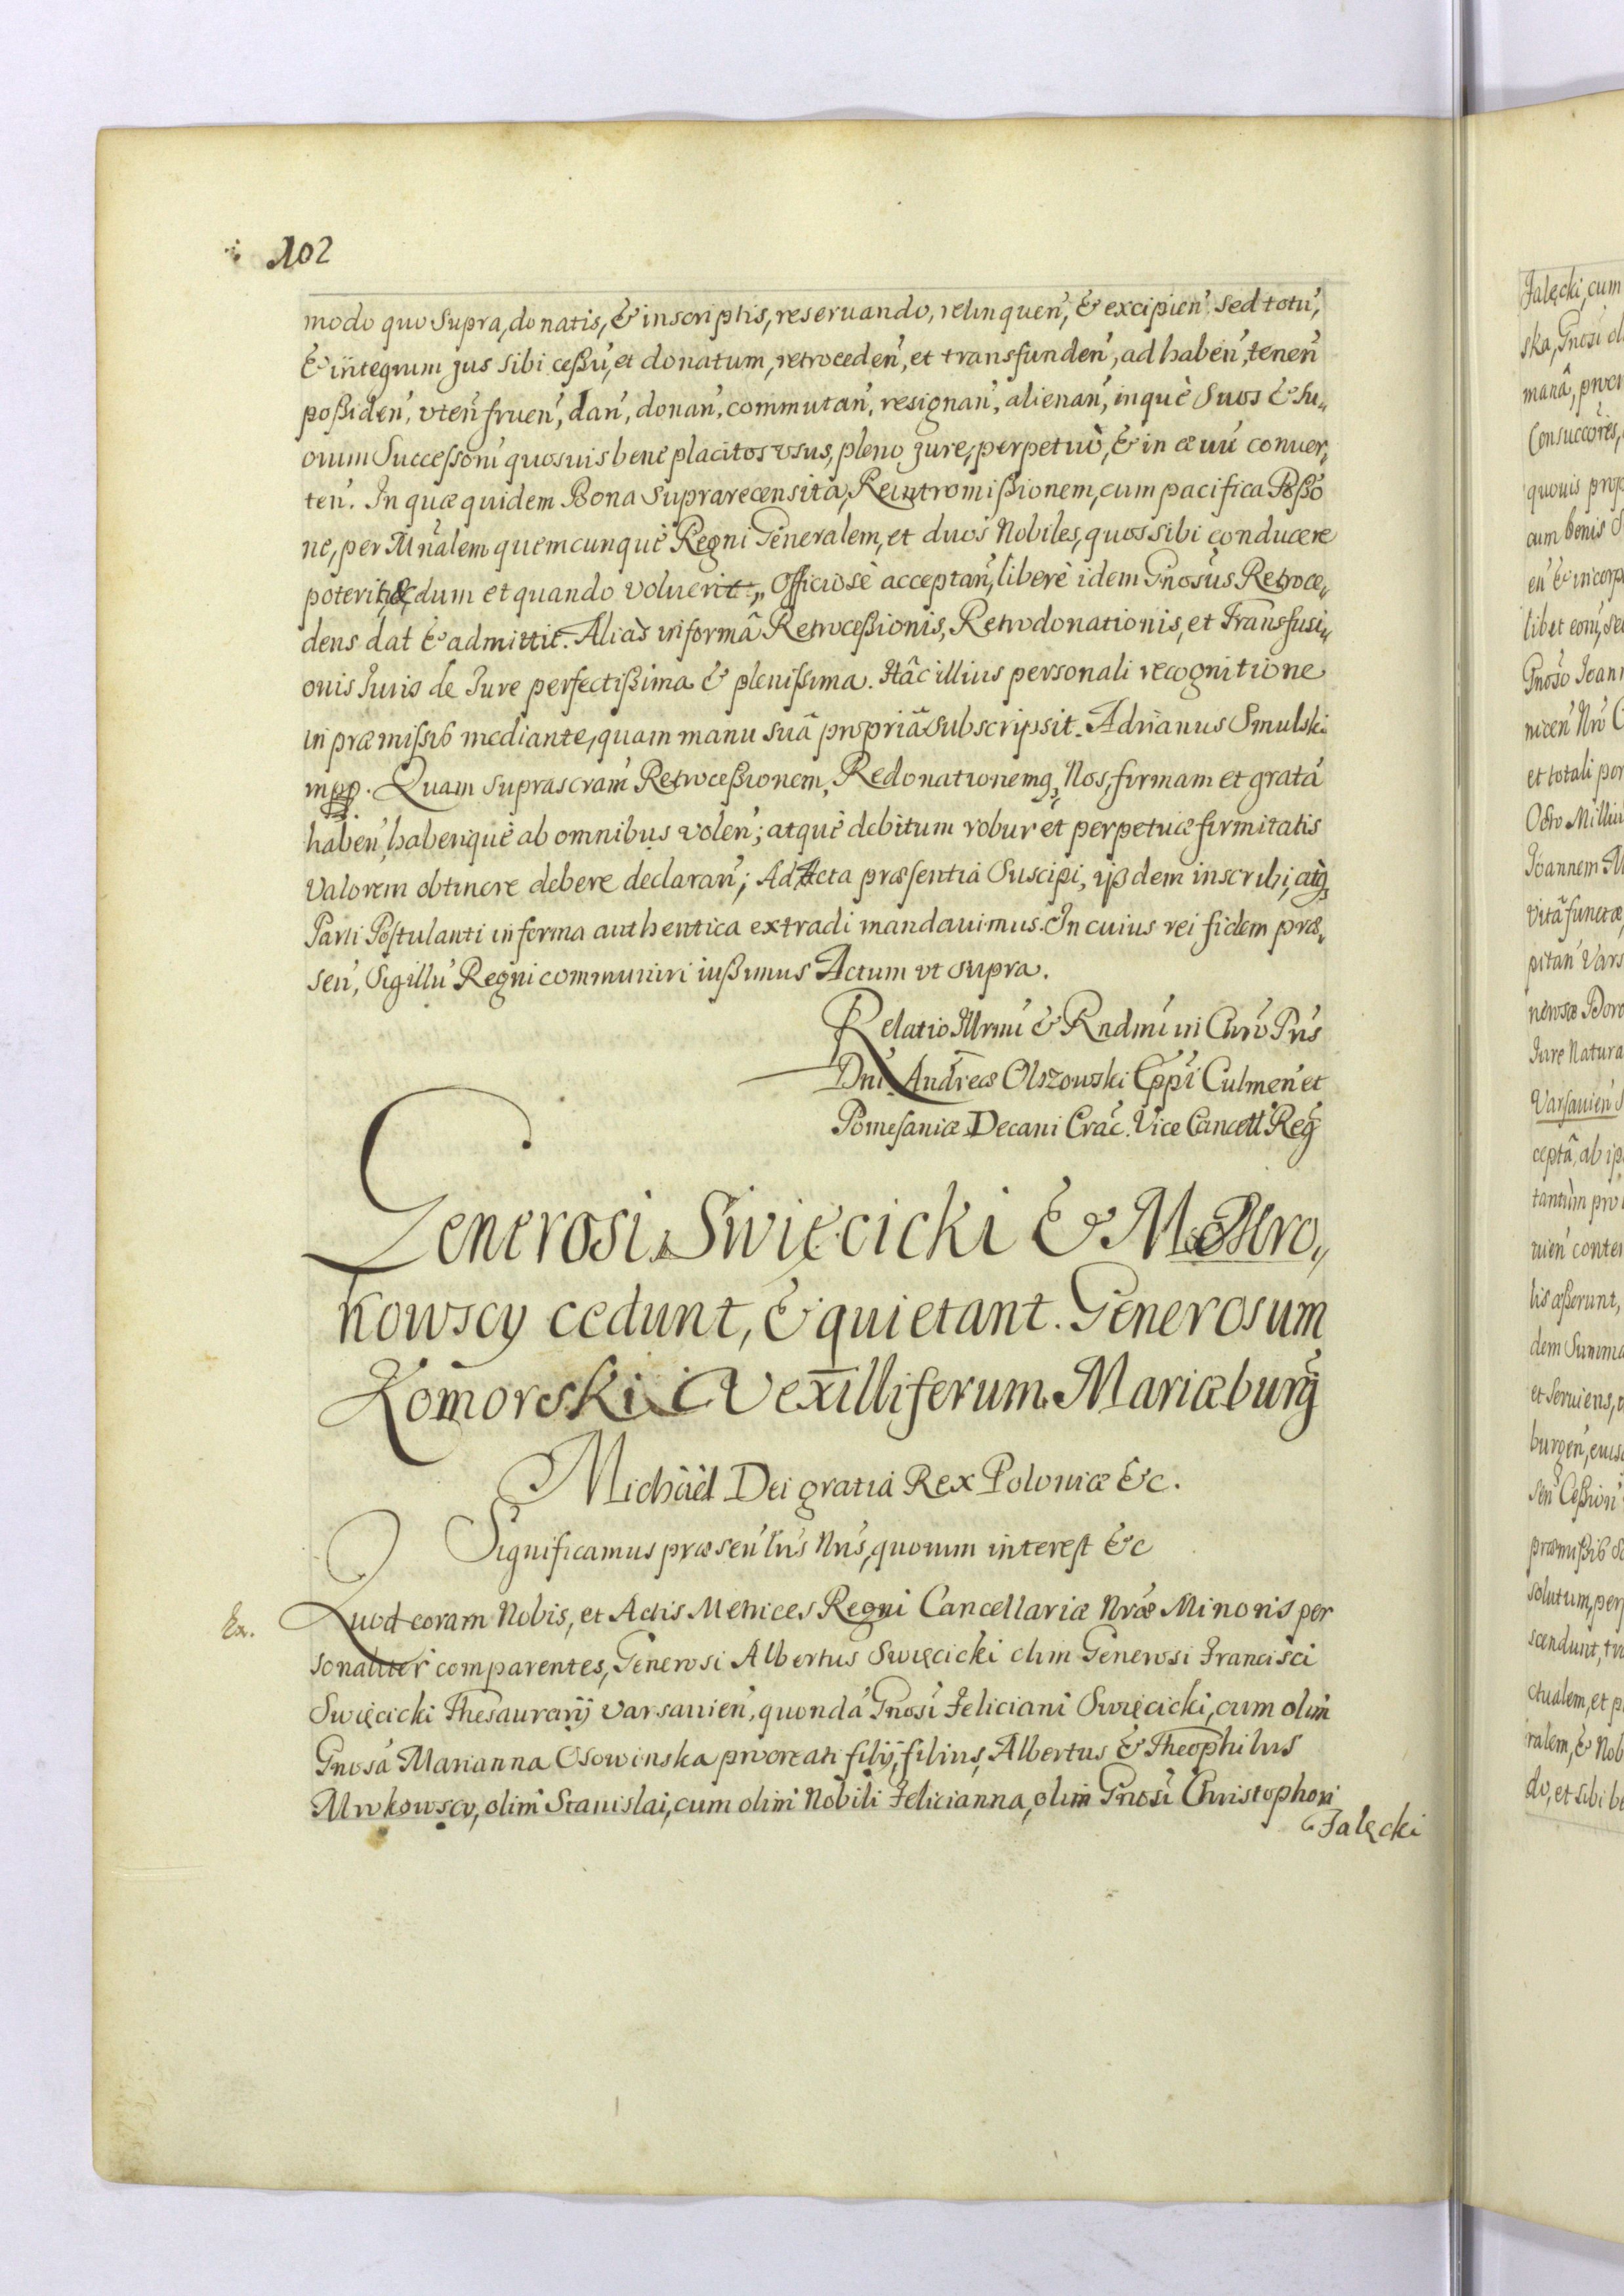 102
modo quo supra, donatis, & inscriptis, reseruando, relinquen̄, & excipien̄. Sed totū,
& integrum jus sibi ceßū, et donatum, retroceden̄, et transfunden̄, ad haben̄, tenen̄
poßiden̄, vten̄ fruen̄, dan̄, donan̄, commutan̄, resignan̄, alienan̄, inquè suos & su„
orum Successorū quosuis bene placitos vsus, pleno jure, perpetuò, & in æuū conuer„
ten̄. In quæ quidem Bona suprarecensita, Reintromißionem, cum pacifica Poßō
ne, per Mn̄alem quemcunquè Regni Generalem, et duos Nobiles, quos sibi conducere
poterit, & dum et quando voluerit„ Officiosè acceptan̄, liberè idem Gnosus Retroce„
dens dat & admittit. Aliàs in formâ Retroceßionis, Retrodonationis, et Transfusi„
onis Juris de Jure perfectißima & plenißima. Hâc illius personali recognitione
in præmissis mediante, quam manu suâ propriâ subscripsit. Adrianus Smulski
mpp. Quam suprascram̄ Retroceßionem, Redonationemq₃, Nos, firmam et gratā
haben̄, haberiquè ab omnibus volen̄; atquè debitum robur et perpetuæ firmitatis
valorem obtinere debere declaran̄; Ad Acta præsentia Suscipi, ijßdem inscribi, atq₃
Parti Postulanti in forma authentica extradi mandauimus. In cuius rei fidem præ„
sen̄, Sigillū Regni communiri iußimus Actum vt supra.
Relatio Illrmi & Rndmi in Chro Pris
Dni Andreæ Olszowski Eppi Culmen̄ et
Pomesaniæ Decani Crac. Vice Cancell Reg̃
Generosi Swięcicki & Mokro„
kowscy cedunt, & quietant. Generosum
Komorski Vexilliferum Mariæburg̃
Michäel Dei gratia Rex Poloniæ &c.
Significamus præsen̄ lris Nris, quorum interest &c
Ex.
Quod coram Nobis, et Actis Metrices Regni Cancellariæ Nræ Minoris per
sonaliter comparentes, Generosi Albertus Swięcicki olim Generosi Francisci
Swięcicki Thesaurarij varsauien̄, quondā Gnosi Feliciani Swięcicki, cum olim
Gnosa Marianna Osowinska procreati filij, filius, Albertus & Theophilus
Mrokowscy, olim Stanislai, cum olim Nobili Felicianna, olim Gnosi Christophori
Jalęcki